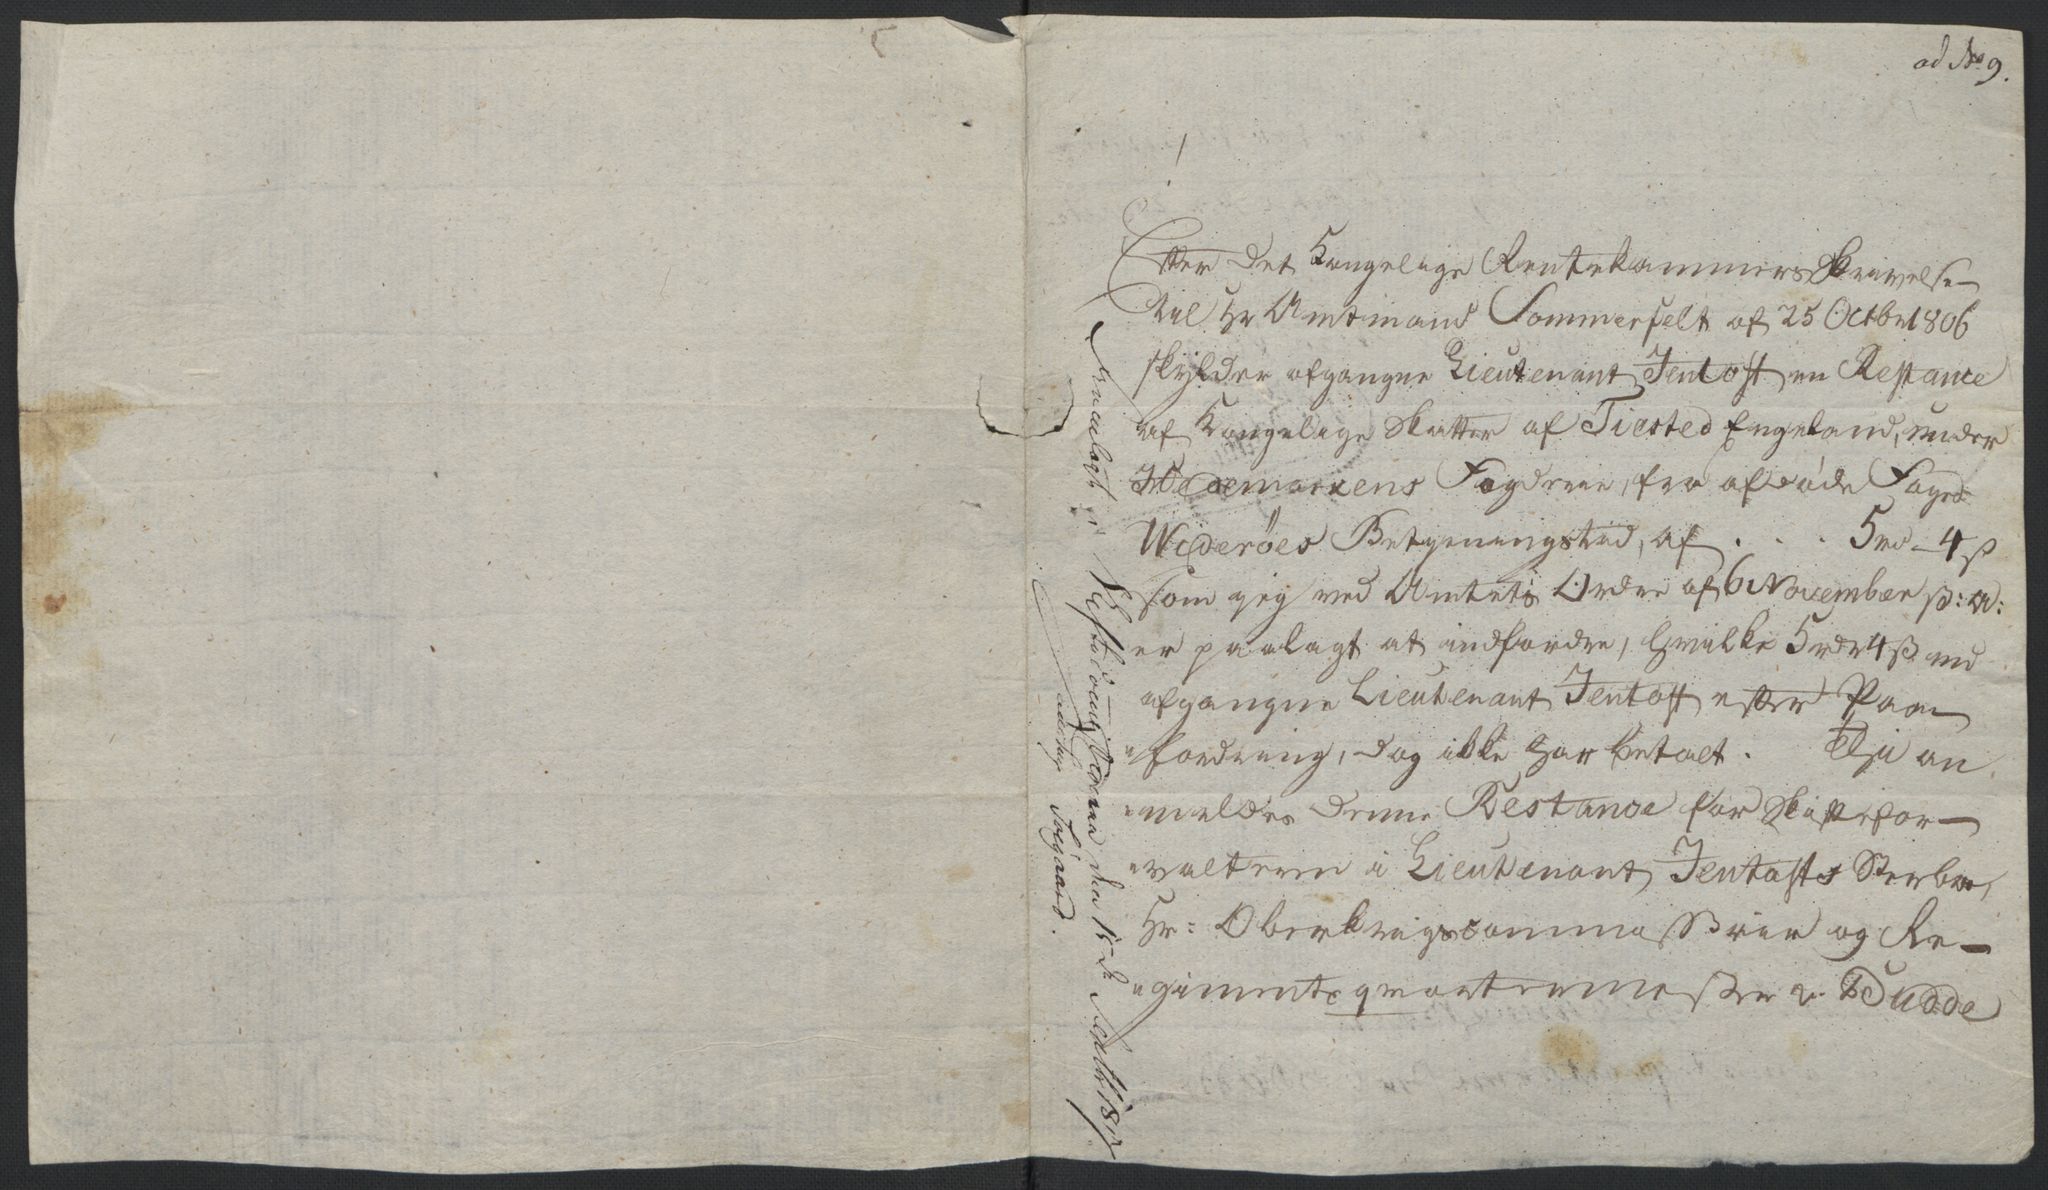 ad No 9.
Efter det Kongelige Rentekammers Skrivelse
til Hr Amtmand Sommerfelt af 25 Octbr 1806
skylder afgangne Lieutenant Jentoft en Restance
af Kongelige Skatter af Tiersted Engeland, under
Hedemarkens Fogderie, fra afdöde Foged
Wideröes Betjeningstid, af . . . 5 rd - 4 ß
som jeg ved Amtets Ordre af 6 November s: A:
er paalagt at indfordre, hvilke 5 rdr 4 ß
afgangne Lieutenant Jentoft efter Paa-
fordring, dog ikke har betalt. Thi an-
meldes denne Restance for Skiftefor-
valteren i Lieutenant Jentofts Sterboe,
Hr: Oberkrigscommissair og Re-
gimentsqvarteermester v. Budde
Fremlagt i Skifte Retten den 15de 1807